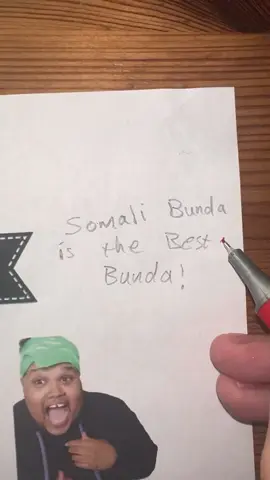 Somali Bunda
is the Best
Bunda!